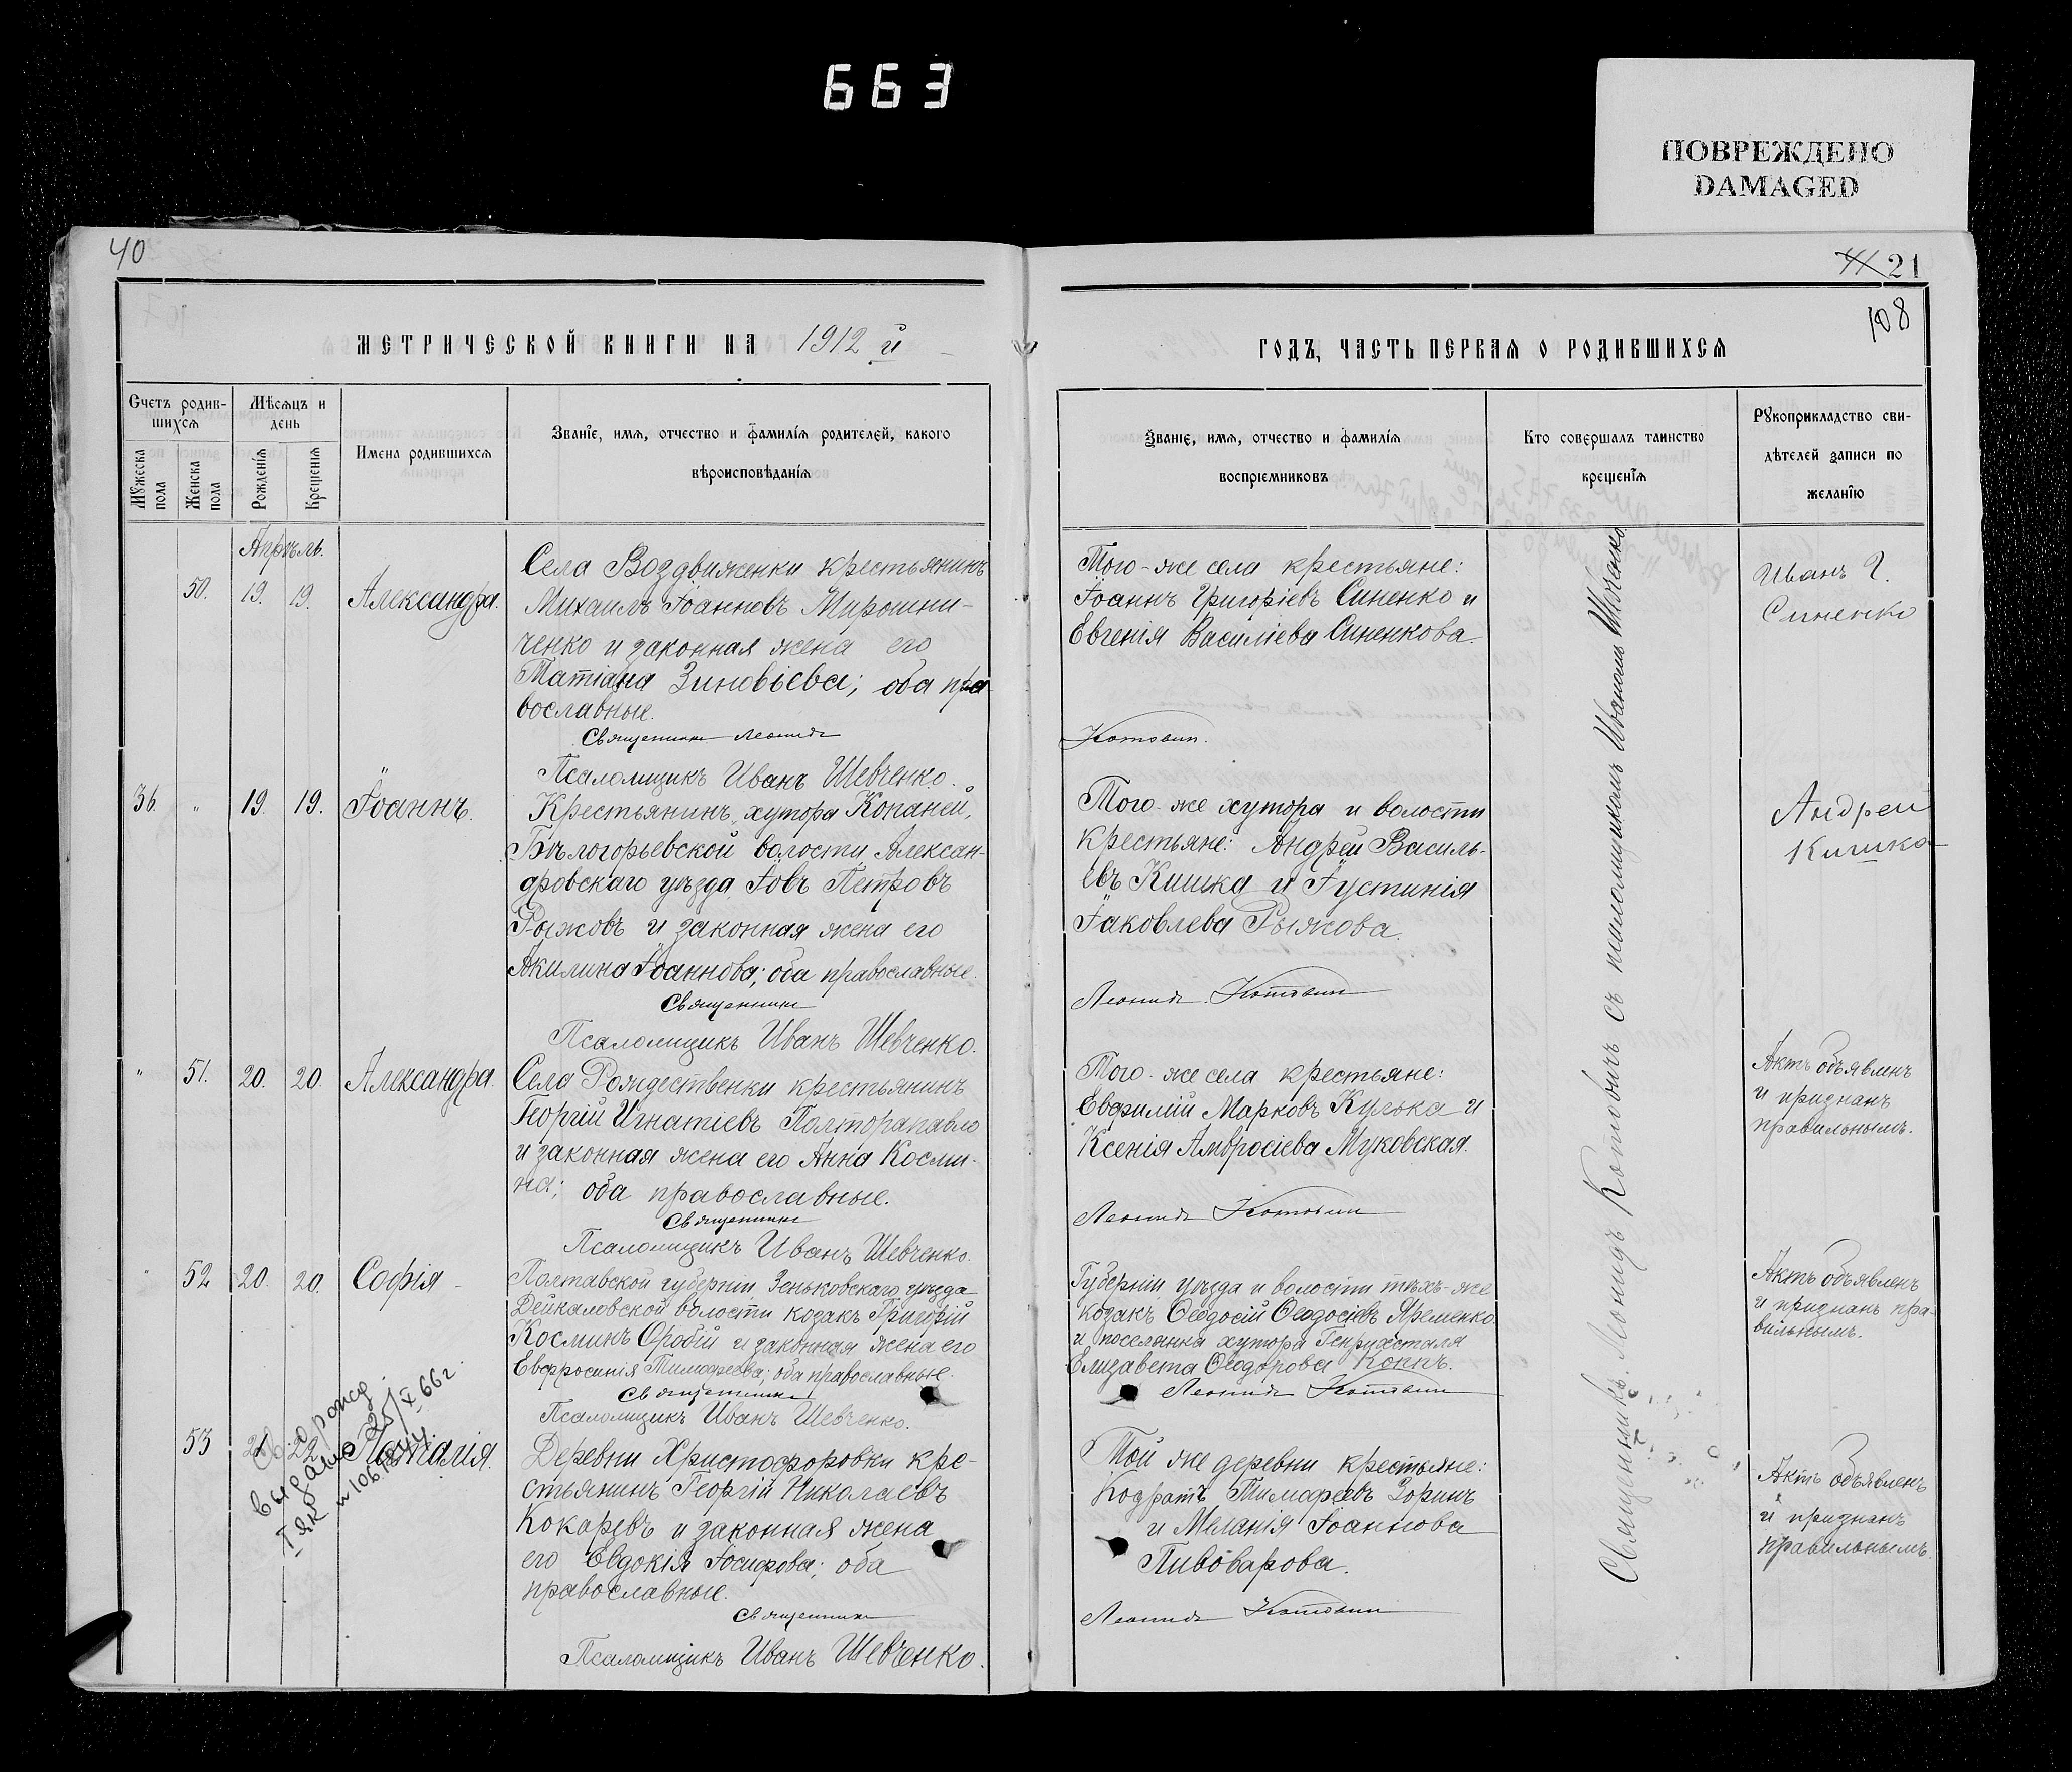 663
ПОВРЕЖДЕНО
DAMAGED
40
МЕТРИЧЕСКОЙ КНИГИ НА 1912 й
Счетъ родив-
шихся
Мѣсяцъ и
день
Мужеска
пола
Женска
пола
Рожденія
Крещенія
Имена родившихся
Званіе, имя, отчество и фамилія родителей, какого
вѣроисповѣданія
Апрѣль.
50. 19. 19. Александра.
Села Воздвиженки крестьянинъ
Михаилъ Іоанновъ Мирошни-
ченко и законная жена его
Татіана Зиновіева; оба пра-
вославные.
Священникъ Леонидъ
Псаломщикъ Иванъ Шевченко.
36. " 19. 19. Іоаннъ.
Крестьянинъ, хутора Копаней,
Бѣлогорьевской волости, Алексан-
дровскаго уѣзда, Іовъ Петровъ
Рыжовъ и законная жена его
Акилина Іоаннова; оба православные.
Священникъ
Псаломщикъ Иванъ Шевченко.
" 51. 20. 20. Александра.
Села Рождественки крестьянинъ
Георгій Игнатіевъ Полторапавло
и законная жена его Анна Косми-
на; оба православные.
Священникъ
Псаломщикъ Иванъ Шевченко.
" 52 20. 20. Софія
Полтавской губерніи, Зеньковскаго уѣзда
Дейкаловской волости козакъ Григорій
Косминъ Оробій и законная жена его
Евфросинія Тимофеева; оба православные.
Священникъ
Псаломщикъ Иванъ Шевченко.
53 21 22 Наталія.
Деревни Христофоровки кре-
стьянинъ Георгій Николаевъ
Кокаревъ и законная жена
его Евдокія Іосифова; оба
православные.
Священникъ
Псаломщикъ Иванъ Шевченко.
о рожд.
выдано 25/X 66г.
I ЯК
41 21
108
ГОДЪ, ЧАСТЬ ПЕРВАЯ О РОДИВШИХСЯ
Званіе, имя, отчество и фамилія
воспріемниковъ
Кто совершалъ таинство
крещенія
Рукоприкладство сви-
дѣтелей записи по
желанію
Того-же села крестьяне:
Іоаннъ Григоріевъ Синенко и
Евгенія Василіева Синенкова.
Котовичъ.
Иванъ Г.
Синенко
Того-же хутора и волости
крестьяне: Андрей Василь-
евъ Кишка и Іустинія
Іаковлева Рыжова.
Леонидъ Котовичъ
Андрей
Кишка
Того-же села крестьяне:
Евфимій Марковъ Кулька и
Ксенія Амвросіева Муковская.
Леонидъ Котовичъ
Актъ объявленъ
и признанъ
правильнымъ.
Губерніи, уѣзда и волости тѣхъ-же
козакъ Ѳеодосій Ѳеодосіевъ Яременко
и поселянка хутора Генрихсталя
Елизавета Ѳеодорова Коппъ.
Леонидъ Котовичъ
Актъ объявленъ
и признанъ пра-
вильнымъ.
Той же деревни крестьяне:
Кодратъ Тимофеевъ Зоринъ
и Меланія Іоаннова
Пивоварова.
Леонидъ Котовичъ
Актъ объявленъ
и признанъ
правильнымъ.
Священникъ Леонидъ Котовичъ съ псаломщикомъ Иваномъ Шевченко